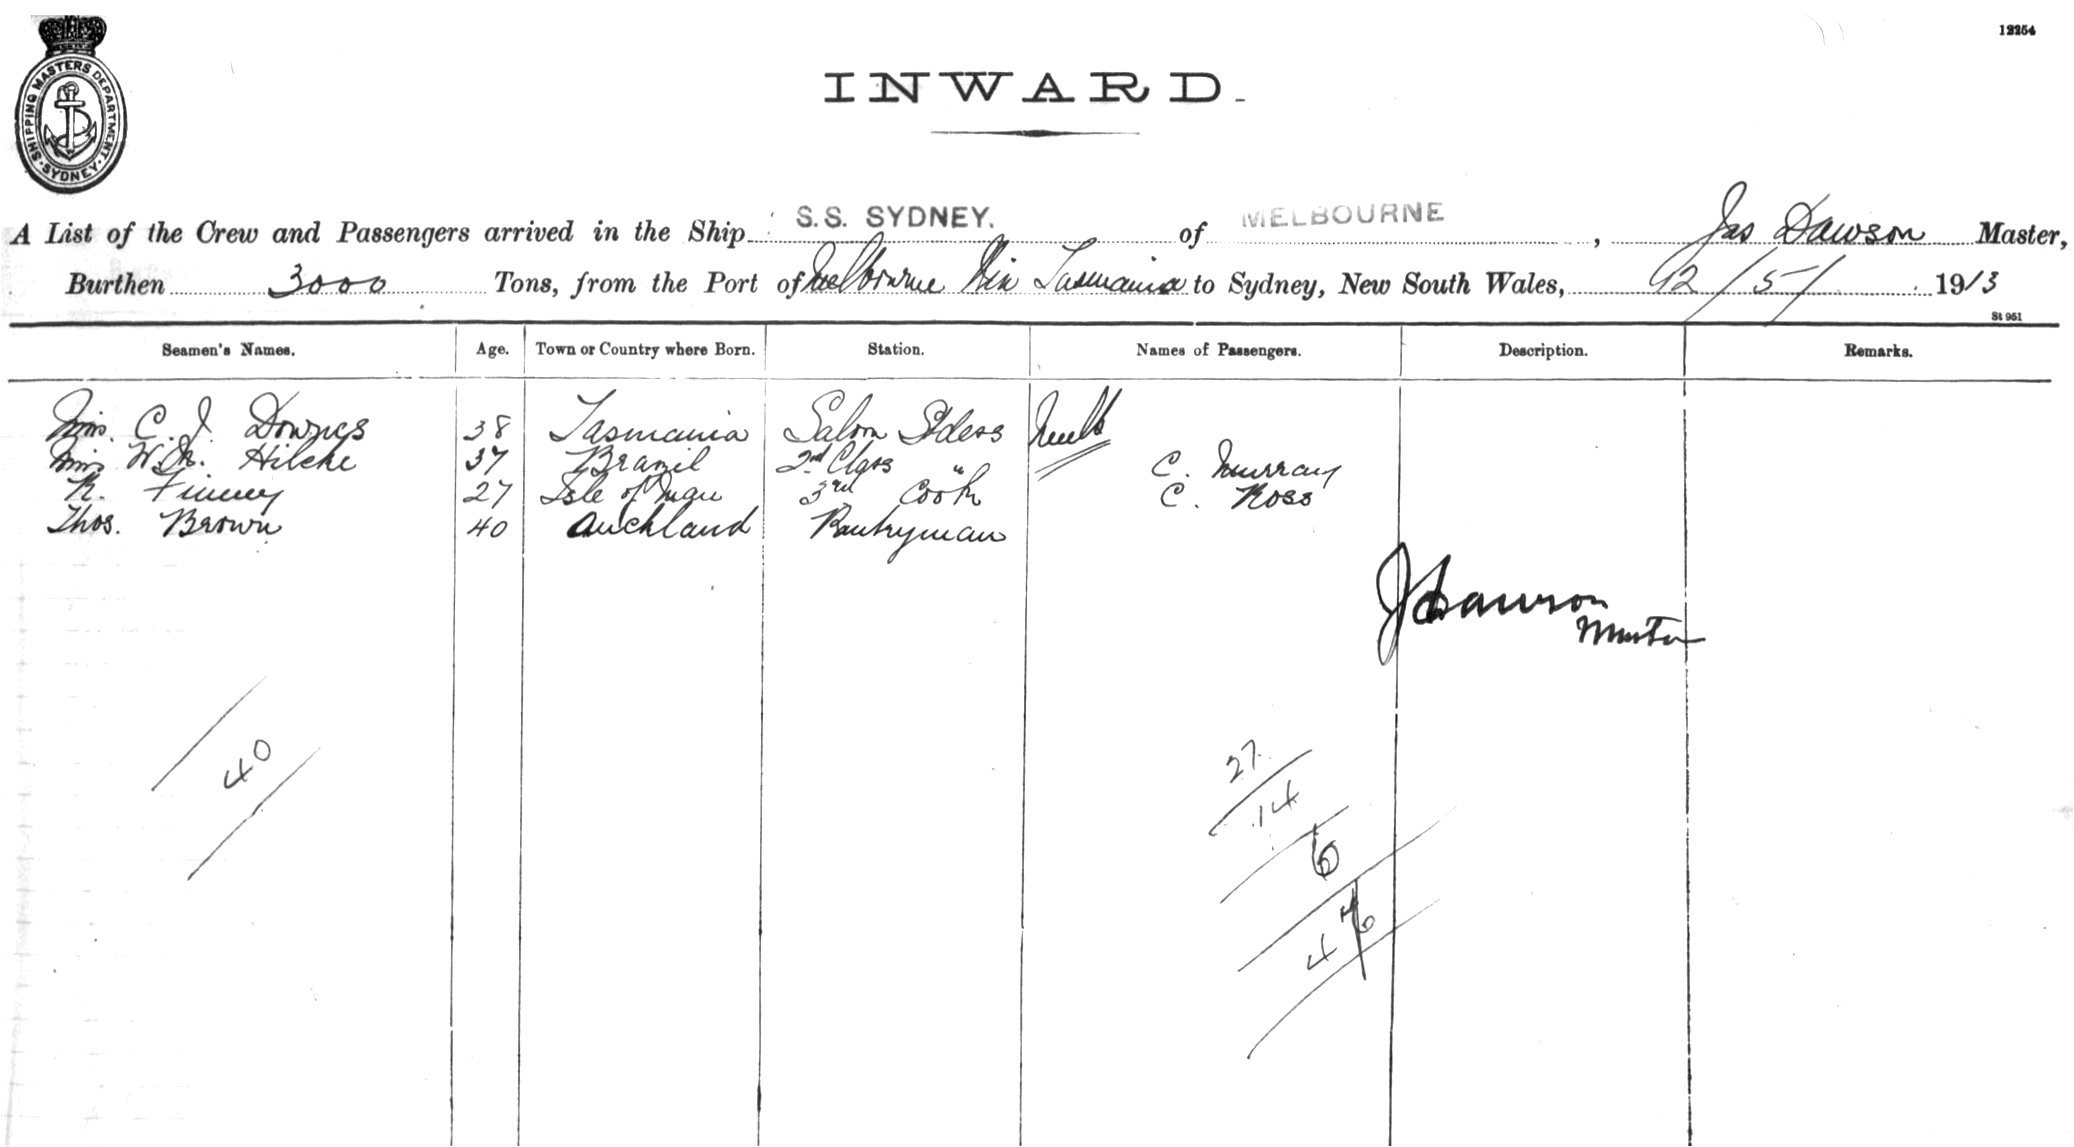 12254
SHIPPING MASTERS DEPARTMENT. SYDNEY.
INWARD.
A List of the Crew and Passengers arrived in the Ship S.S. SYDNEY. of MELBOURNE, Jas Dawson Master,
Burthen 3000 Tons, from the Port of Melbourne Via Tasmania to Sydney, New South Wales, 12/5/ 1913
St 951
Seamen's Names. Age. Town or Country where Born. Station. Names of Passengers. Description. Remarks.
C. J. Downes 38 Tasmania Saloon Stdess
Hilcke 37 Brazil 2nd Class "
C. Murray
R. Finney 27 Isle of Man 3rd Cook
C. Ross
Thos. Brown 40 Auckland Pantryman
JDawson
Master
40
27
14
6